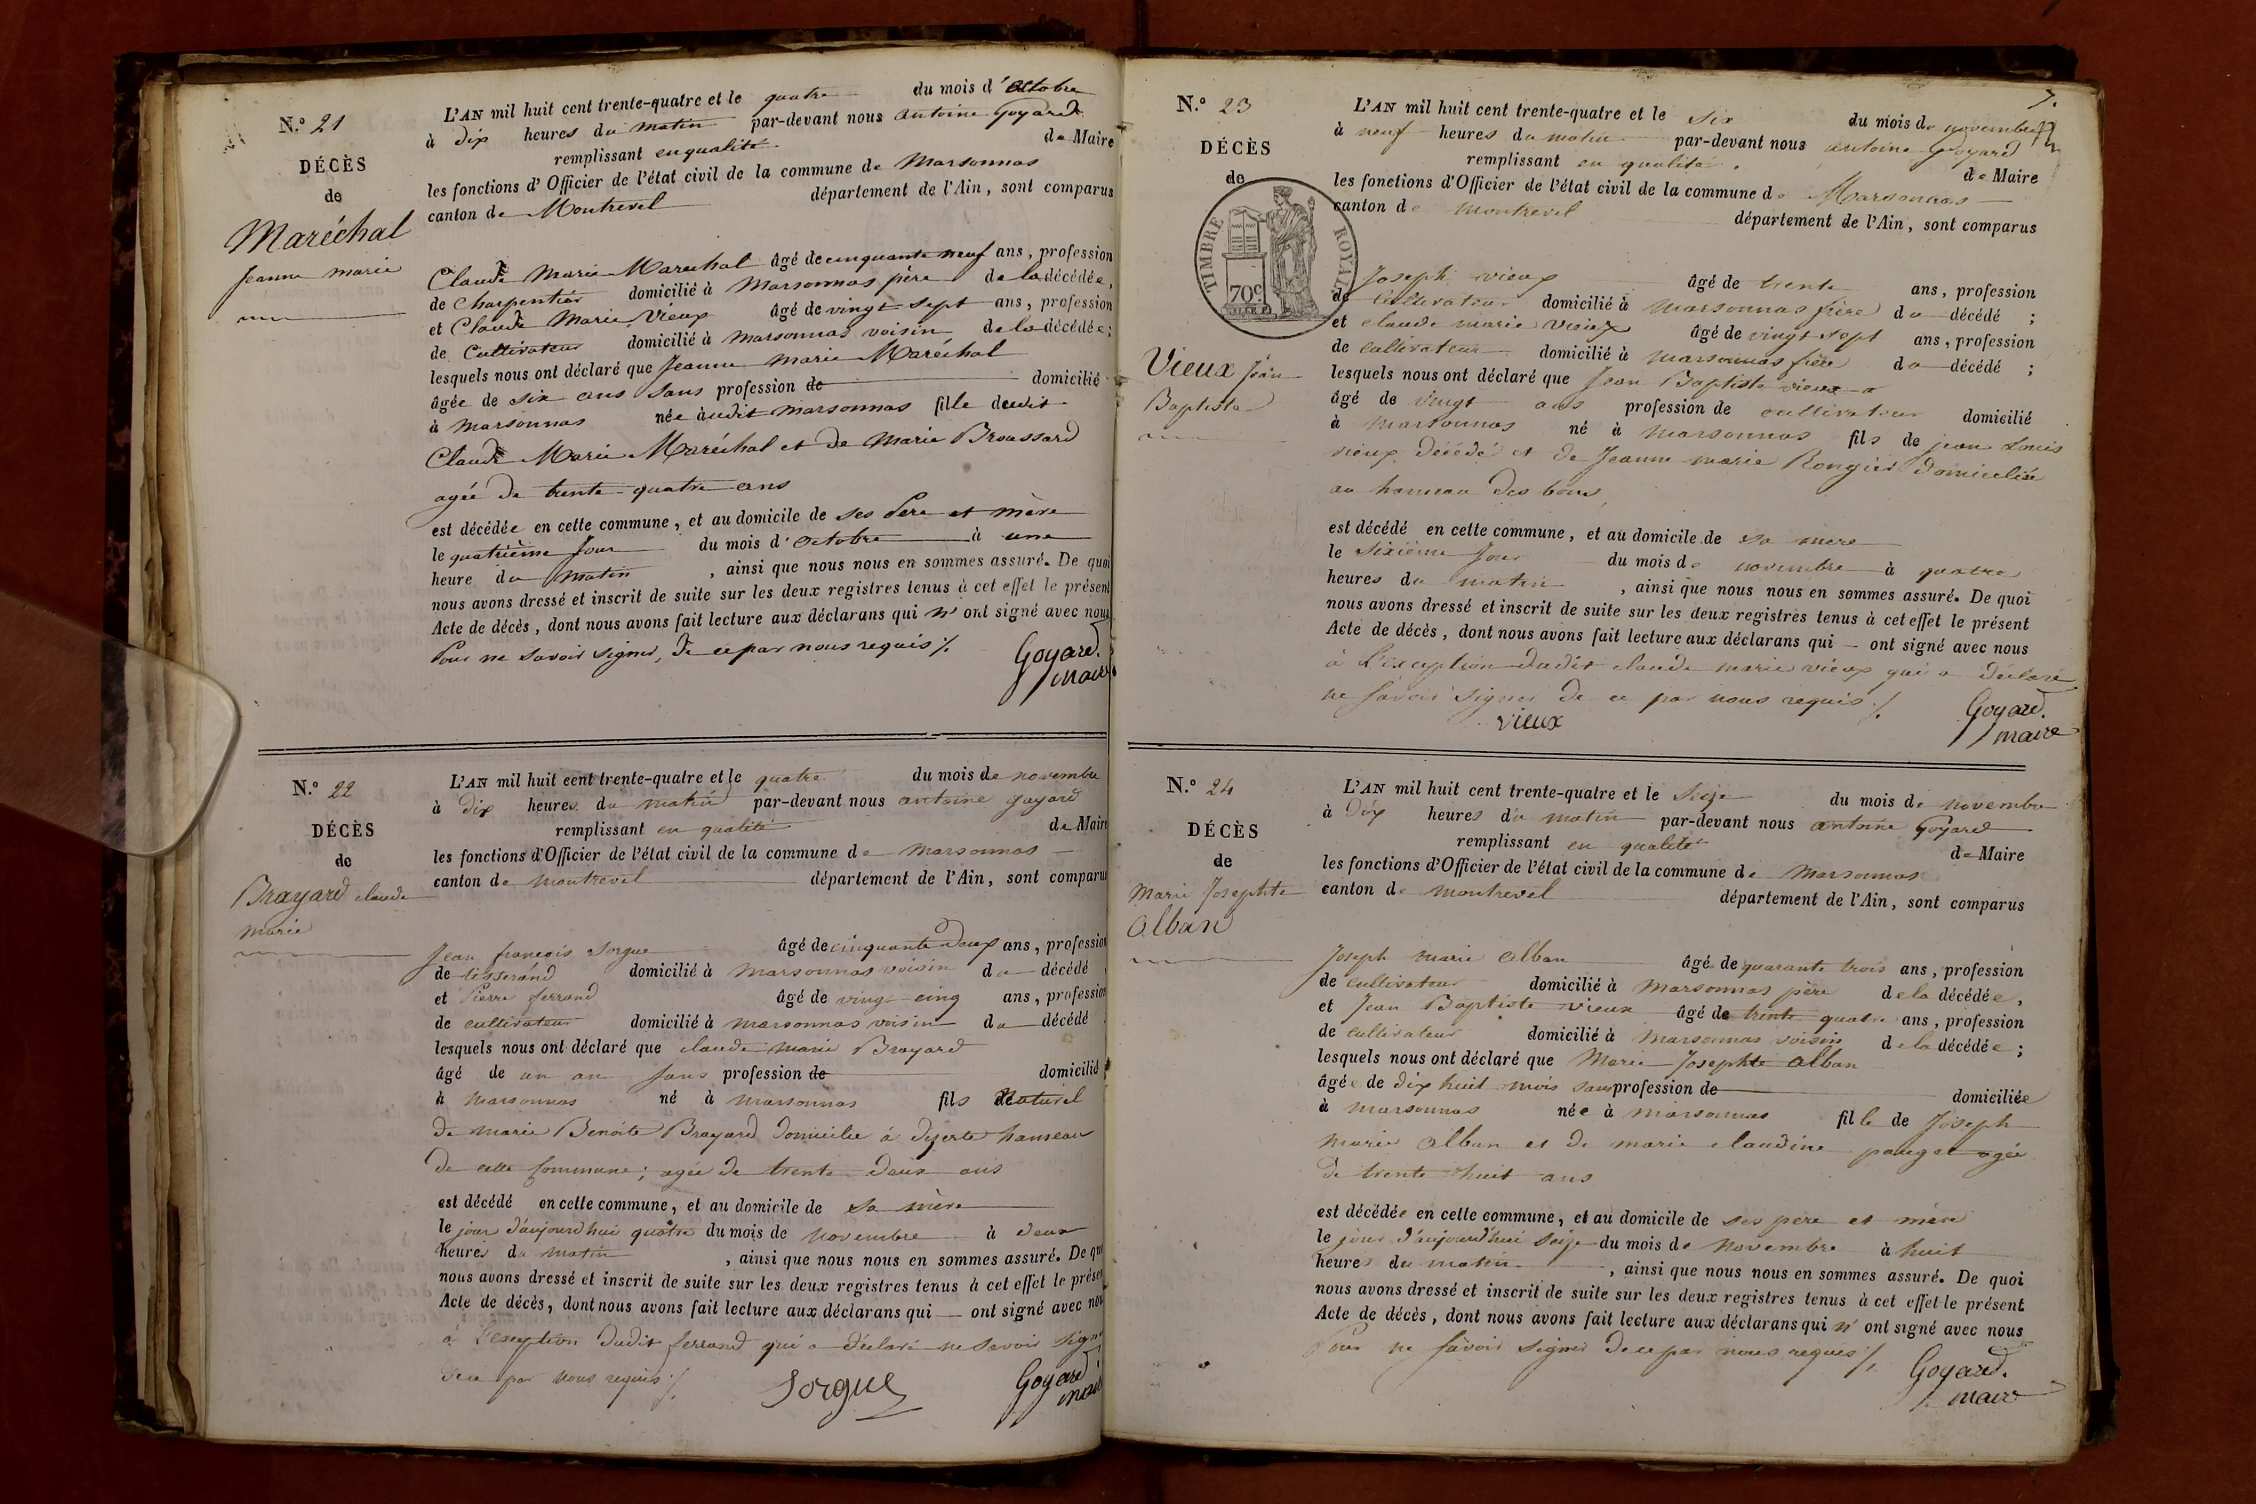 N.° 21
DÉCÈS
de
Maréchal
Jeanne marie
L'AN mil huit cent trente-quatre et le quatre du mois d'Octobre
à dix heures du matin par-devant nous antoine Goyard
remplissant en qualité de Maire
les fonctions d'Officier de l'état civil de la commune de Marsonnas
canton de Montrevel département de l'Ain, sont comparus
Claude Marie Marechal âgé de cinquante neuf ans, profession
de Charpentier domicilié à Marsonnas père de la décédée,
et Claude Marie Vieux âgé de vingt sept ans, profession
de Cultivateur domicilié à Marsonnas voisin de la décédée;
lesquels nous ont déclaré que Jeanne Marie Maréchal
âgée de six ans Sans profession de domicilié
à Marsonnas née àudit Marsonnas fille dudit
Claude Marie Maréchal et de Marie Broussard
agée de trente-quatre ans
est décédée en cette commune, et au domicile de ses Pere et mère
le quatrième Jour du mois d'Octobre à une
heure du matin, ainsi que nous nous en sommes assuré. De quoi
nous avons dressé et inscrit de suite sur les deux registres tenus à cet effet le présent
Acte de décès, dont nous avons fait lecture aux déclarans qui n'ont signé avec nous
Pour ne savoir signer, de ce par nous requis ./.
Goyard.
maire
N.° 22
DÉCÈS
de
Brayard claude
marie
L'AN mil huit cent trente-quatre et le quatre du mois de novembre
à dix heures du matin par-devant nous antoine goyard
remplissant en qualité de Maire
les fonctions d'Officier de l'état civil de la commune de Marsonnas
canton de montrevel département de l'Ain, sont comparu
Jean françois Sorgue âgé de cinquante deux ans, profession
de tisserand domicilié à Marsonnas voisin du décédé
et Pierre ferrand âgé de vingt-cinq ans, profession
de cultivateur domicilié à Marsonnas voisin du décédé
lesquels nous ont déclaré que claude marie Brayard
âgé de un an sans profession de domicilié
à Marsonnas né à Marsonnas fils Naturel
de marie Benoite Brayard domicilée à
de cette Commune; agée de trente deux ans
est décédé en cette commune, et au domicile de sa mère
le jour d'aujourd'hui quatre du mois de Novembre à deux
heures du matin, ainsi que nous nous en sommes assuré. De quoi
nous avons dressé et inscrit de suite sur les deux registres tenus à cet effet le présen
Acte de décès, dont nous avons fait lecture aux déclarans qui — ont signé avec nou
à l'exception dudit ferrand qui a déclaré ne savoir signer
de ce par nous requis ./.
Sorgue
Goyard
maire
7.
N.° 23
DÉCÈS
de
TIMBRE ROYAL
70c
Vieux Jean
Baptiste
L'AN mil huit cent trente-quatre et le Six du mois de novembre
à neuf heures du matin par-devant nous antoine Goyard
remplissant en qualité de Maire
les fonctions d'Officier de l'état civil de la commune de Marsonnas
canton de montrevel département de l'Ain, sont comparus
Joseph vieux âgé de trente ans, profession
de Cultivateur domicilié à Marsonnas frère du décédé;
et claude marie vieux âgé de vingt sept ans, profession
de cultivateur domicilié à Marsonnas frère du décédé;
lesquels nous ont déclaré que Jean Baptiste vieux
âgé de vingt ans profession de cultivateur domicilié
à Marsonnas né à Marsonnas fils de jean Louis
vieux décédé et de Jeanne marie Rongier domiciliée
au hameau des
est décédé en cette commune, et au domicile de sa mere
le Sixième Jour du mois de novembre à quatre
heures du matin, ainsi que nous nous en sommes assuré. De quoi
nous avons dressé et inscrit de suite sur les deux registres tenus à cet effet le présent
Acte de décès, dont nous avons fait lecture aux déclarans qui — ont signé avec nous
à l'exception dudit claude marie vieux qui a déclaré
ne savoir signer de ce par nous requis ./.
vieux
Goyard.
maire
N.° 24
DÉCÈS
de
Marie Josephte
Alban
L'AN mil huit cent trente-quatre et le Seize du mois de novembre
à Dix heures du matin par-devant nous antoine Goyard
remplissant en qualité de Maire
les fonctions d'Officier de l'état civil de la commune de Marsonnas
canton de montrevel département de l'Ain, sont comparus
Joseph marie Alban âgé de quarante trois ans, profession
de cultivateur domicilié à Marsonnas père de la décédée,
et Jean Baptiste vieux âgé de trente quatre ans, profession
de cultivateur domicilié à Marsonnas voisin de la décédée;
lesquels nous ont déclaré que Marie Josephte Alban
âgée de dix huit mois sans profession de domiciliée
à Marsonnas née à Marsonnas fille de Joseph
Marie Alban et de marie claudine pauget agée
de trente huit ans
est décédée en cette commune, et au domicile de ses père et mère
le jour d'aujourd'hui seize du mois de Novembre à huit
heures du matin, ainsi que nous nous en sommes assuré. De quoi
nous avons dressé et inscrit de suite sur les deux registres tenus à cet effet le présent
Acte de décès, dont nous avons fait lecture aux déclarans qui n'ont signé avec nous
Pour ne savoir signer de ce par nous requis ./.
Goyard.
maire